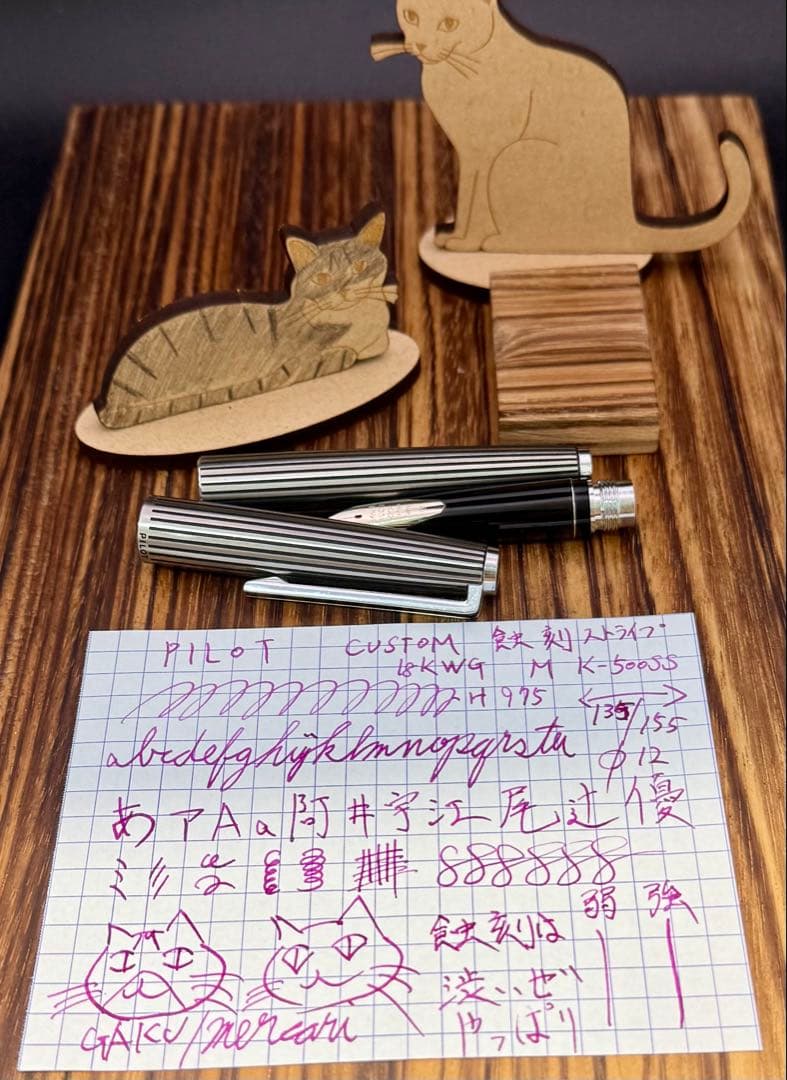 PILOT
PILOT CUSTOM 蝕刻 ストライプ
18KWG M K-500SS
H 975
135/155
φ12
abcdefghijklmnopqrstu
あ ア A a 阿 井 宇 江 尾 辻 優
弱 強
蝕刻は
渋いぜ
やっぱり
GAKU/mercari